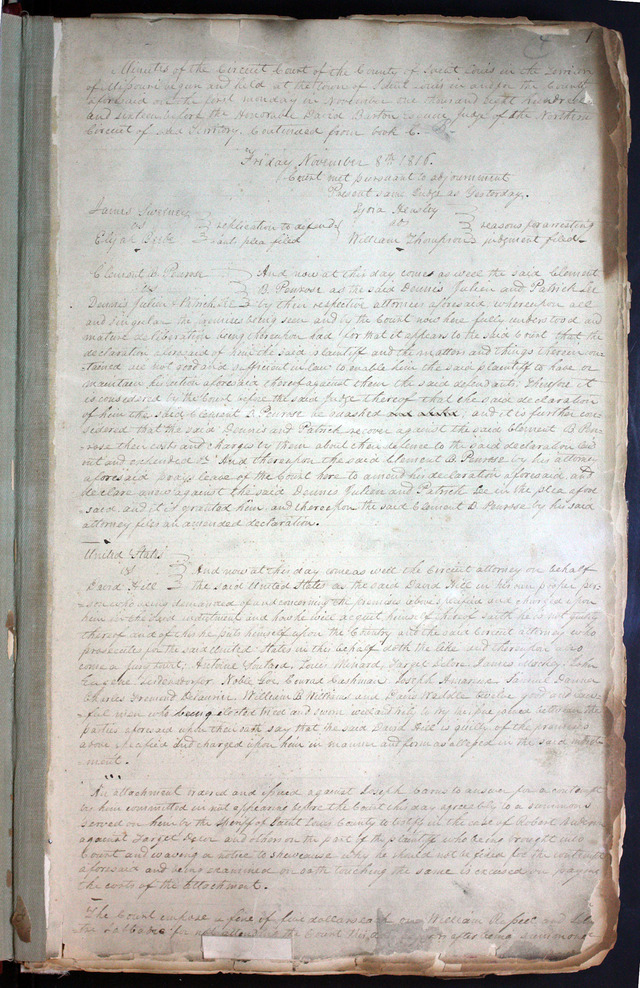 1
Minutes of the Circuit Court of the County of Saint Louis in the Territory
of Missouri begun and held at the town of Saint Louis in and for the County
aforesaid on the first monday in November one thousand eight hundred
and sixteen before the Honorable David Barton esquire Judge of the Northern
Circuit of said Territory. Continued from book C.
Friday November 8th 1816.
Court met pursuant to adjournment
Present same Judge as Yesterday.
James Sweeney
vs
Elijah
replication to defend
ants plea filed
Ezra
vs
William Thompson
reasons for arresting
judgment filed
Clement B. Penrose
vs
Dennis Julien & Patrick Lee
And now at this day comes as well the said Clement
B. Penrose as the said Dennis Julien and Patrick Lee
by their respective attornies aforesaid whereupon all
and singular the premises being seen and by the Court now here fully understood and
mature deliberation being thereupon had for that it appears to the said Court that the
declaration aforesaid of him the said plaintiff and the matters and things therein con
tained are not good and sufficient in law to enable him the said plaintiff to have or
maintain his action aforesaid thereof against them the said defendants. Therefore it
is considered by the Court before the said Judge thereof that the said declaration
of him the said Clement B. Penrose be quashed and it is further con
sidered that the said Dennis and Patrick recover against the said Clement B. Pen
rose their costs and charges by them about their defence to the said declaration laid
out and expended &c. And thereupon the said Clement B. Penrose by his attorney
aforesaid prays leave of the Court here to amend his declaration aforesaid, and
declare anew against the said Dennis Julien and Patrick Lee in the plea afore
said, and it is granted him, and thereupon the said Clement B. Penrose by his said
attorney files an amended declaration.
United States
vs
David Hill
And now at this day come as well the Circuit attorney on behalf
the said United States as the said David Hill in his own proper per
son who being demanded of and concerning the premises above specified and charged upon
him in the said indictment and how he will acquit himself thereof saith he is not guilty
thereof and of this he puts himself upon the Country and the said Circuit attorney who
prosecutes for the said United States in this behalf doth the like and thereupon also
come a jury to wit, Antoine Soulard, Louis Menard, James Mosley, John
Conrad Cashman, Joseph Samuel
Charles Fremond Delaurier, William B. Wilkins and David twelve good and law
ful men who being elected tried and sworn well and truly to try the issue joined between the
parties aforesaid upon their oath say that the said David Hill is guilty of the premises
above specified and charged upon him in manner and form as alleged in the said indict
ment.
An attachment issued and against Joseph to answer for a contempt
by him committed in not appearing before the Court this day agreeably to a summons
served on him by the Sheriff of Saint Louis County to testify in the case of Robert
against and others on the part of the plaintiff who being brought into
Court and waving a notice to shew cause why he should not be fined for the contempt
aforesaid and being examined on oath touching the same is excused on paying
the costs of the attachment.
The Court impose a fine of five dollars each on William and
for not attending the Court after being summoned